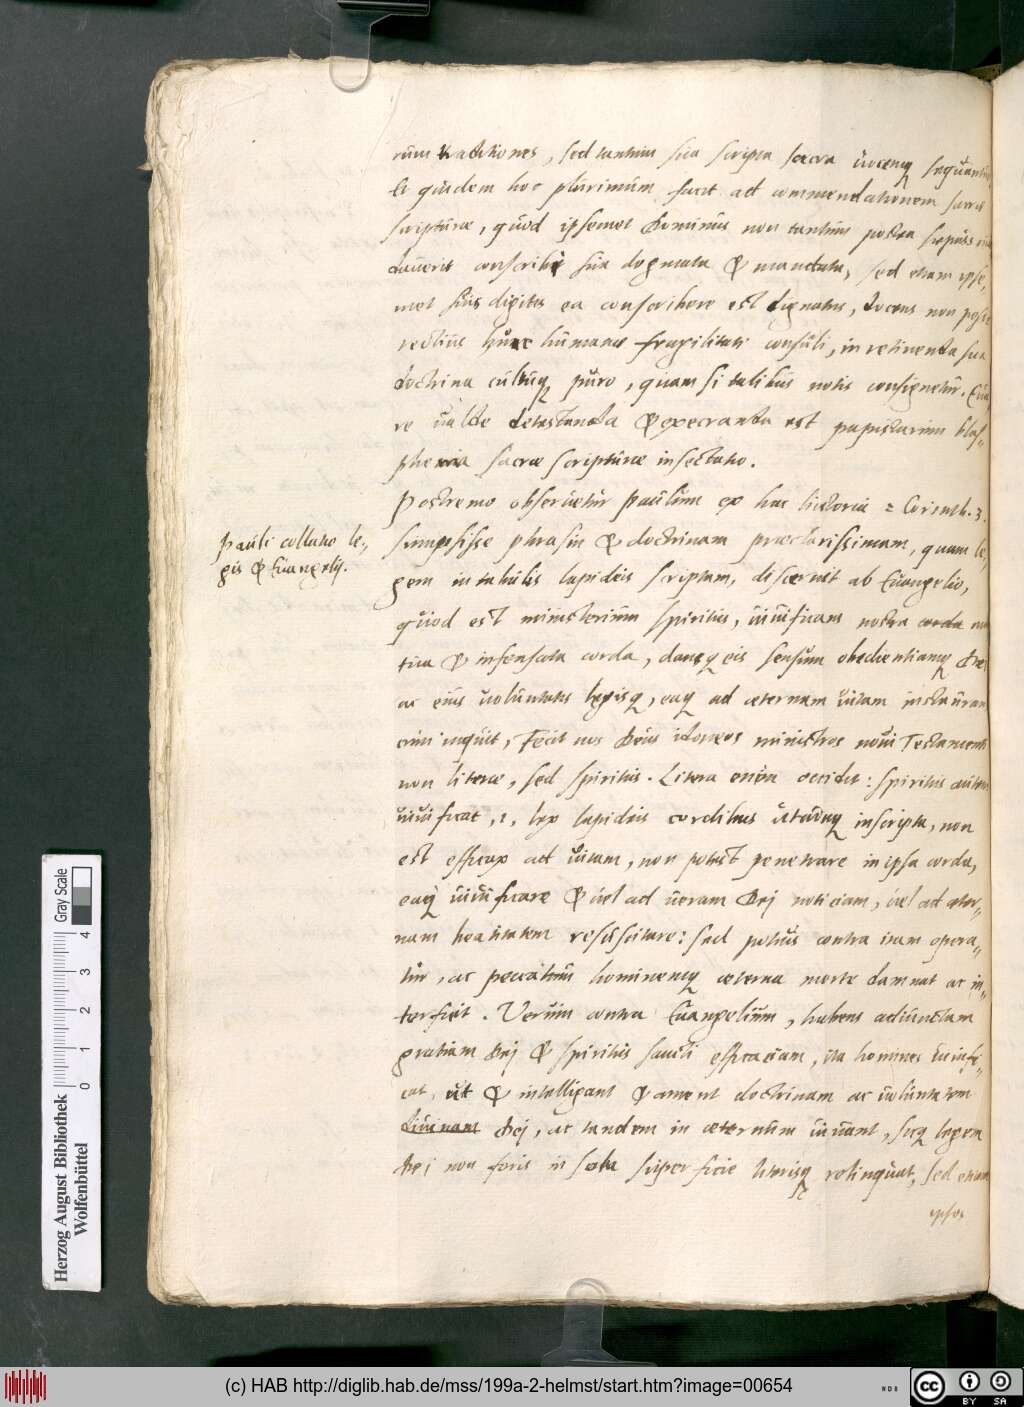 rum traditiones, sed tantum sua scripta sacra vocemq sequantur
Et quidem hoc plurimum facit ad commendationem sacrae
scripturae, quod ipsemet Dominus non tantum postea saepius
conscribi sua dogmata & mandata, sed etiam ipse,
met suis digitis ea conscribere est dignatus, docens non posse
rectius huic humanae fragilitati consuli, in retinenda sua
doctrina cultuq puro, quam si talibus notis consignetur. Qua
re valde detestanda & execranda est papistarum blas„
phemia sacrae scripturae insectatio.
Postremo observetur Paulum ex hac historia 2 Corinth. 3.
Pauli collatio le„
gis & Euangelij.
sumpsisse phrasin & doctrinam praeclarissimam, quam le„
gem in tabulis lapideis scriptam, discernit ab Euangelio,
quod est ministerium spiritus, vivificans nostra corda
& insensata corda, dansq eis sensum obedientiamq Dei
ac eius voluntatis legisq, eaq ad aeternam vitam instaurans
enim inquit, Fecit nos Deus idoneos ministros novi Testamenti
non literae, sed spiritus. Litera enim occidit: spiritus autem
vivificat, .i. lex lapideis cordibus inscripta, non
est efficax ad vitam, non potest penetrare in ipsa corda,
eaq vivificare & vel ad veram Dej noticiam, vel ad aeter„
nam beatitatem resuscitare: sed potius contra iram opera„
tur, ac peccatum hominemq aeterna morte damnat ac in„
terficit. Verum contra Euangelium, habens adiunctam
gratiam Dej & spiritus sancti efficaciam, ita homines vivifi„
cat, ut & intelligant & ament doctrinam ac voluntatem
divinam Dej, ac tandem in aeternum vivant, sicq legem
Dej non foris in sola superficie literisq relinquat, sed etiam
ipsos
Herzog August Bibliothek
Wolfenbüttel
0 1 2 3 4
Gray Scale
(c) HAB http://diglib.hab.de/mss/199a-2-helmst/start.htm?image=00654
cc BY SA